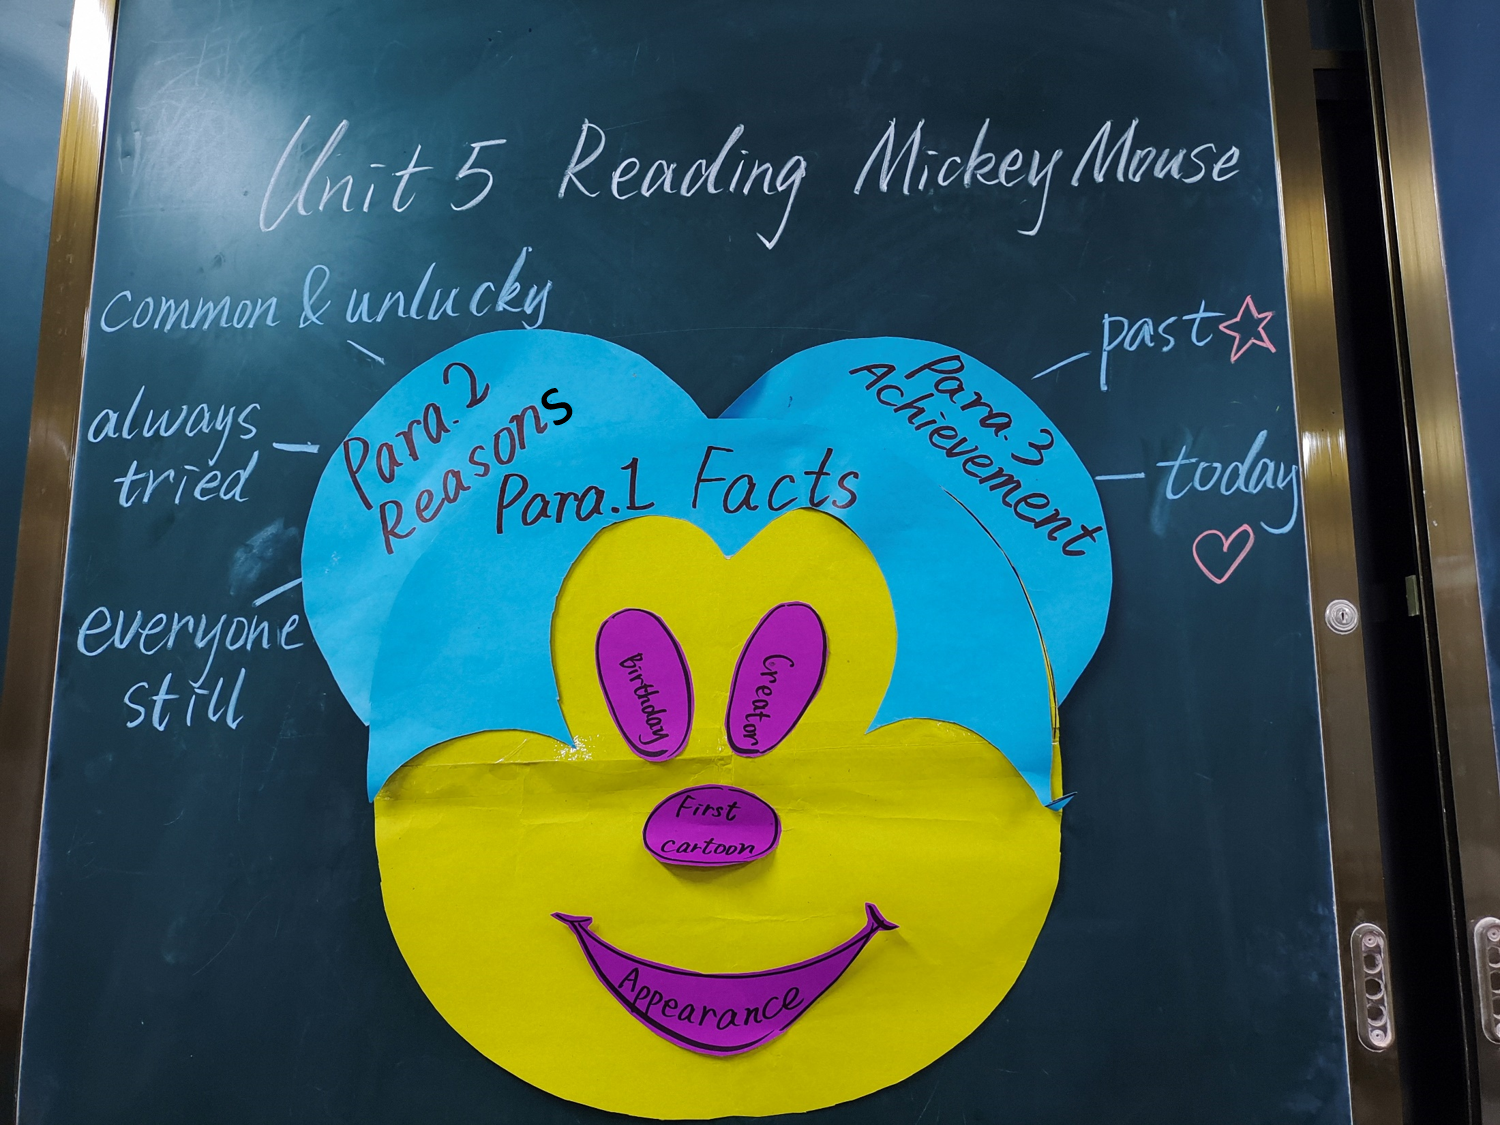 Unit 5 Reading Mickey Mouse
common & unlucky
always
tried
everyone
still
Para.2
Reasons
Para.1 Facts
Para.3
Achievement
past
today
Birthday
Creator
First
cartoon
Appearance